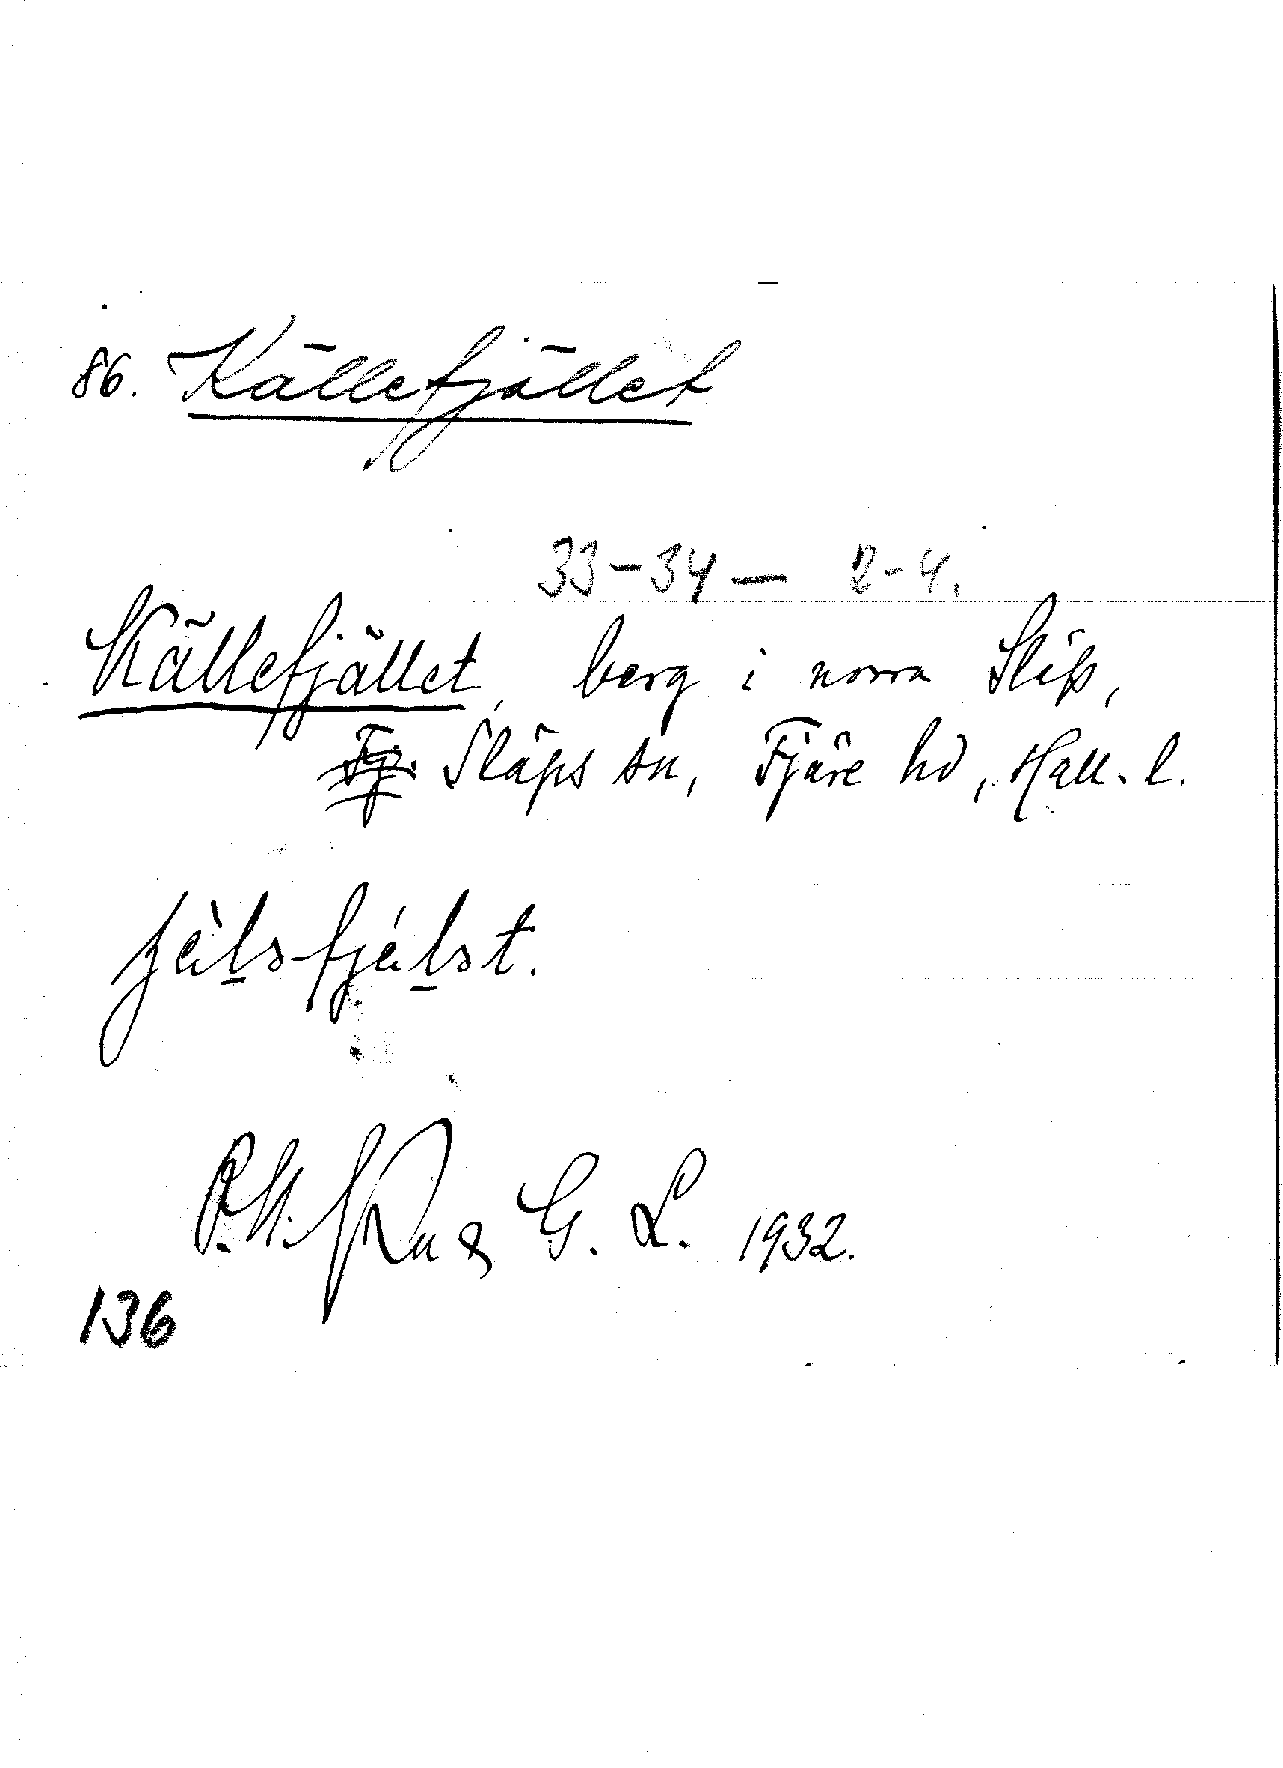 86. Källefjället
33-34 — 2-4.
Källefjället, berg i norra Släp,
Släps sn, Fjäre hd, Hall. l.
G. L. 1932.
136